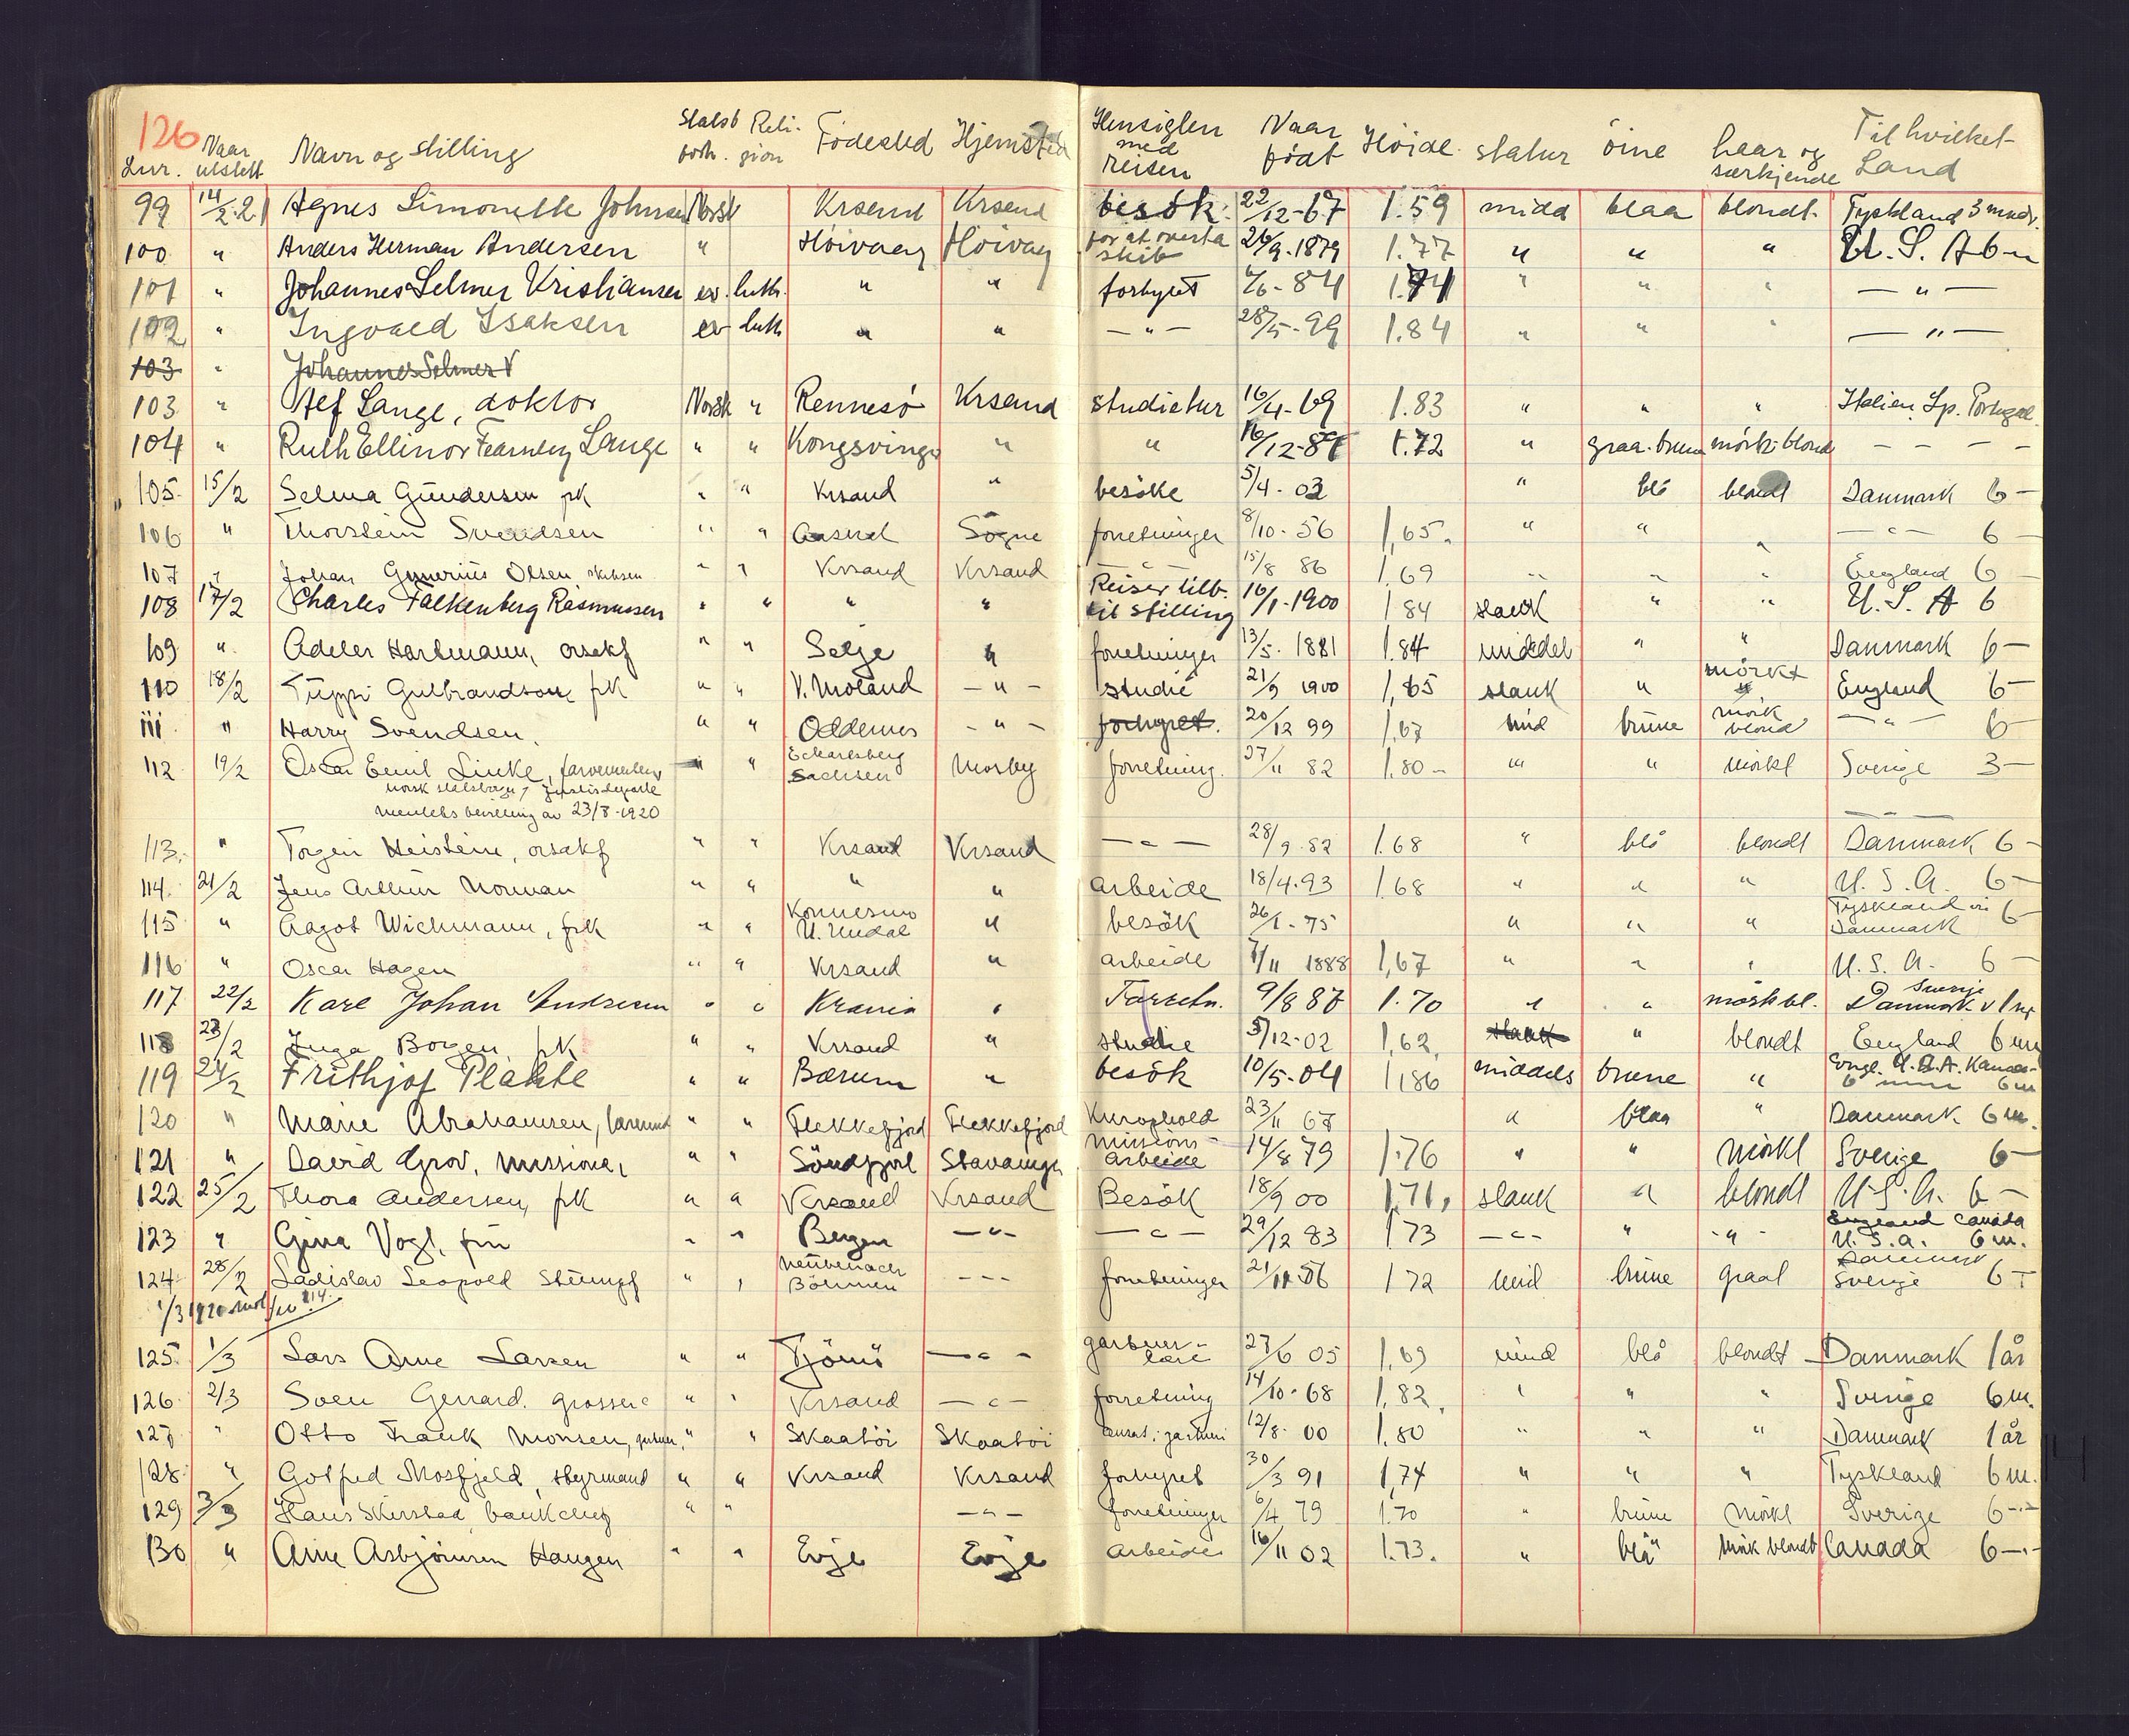 126
Lnr. Naar utstett Navn og stilling Statsb forh. Reli-gion Födested Hjemsted Hensigten med reisen Naar födt Höide statur öine haar og særkjende Til hvilket Land
99 14/2-21 Agnes Simonette Johnsen Norsk Krsand Krsand besök. 22/12-67 1.59 midd blaa blondt. Tyskland 3 mndr.
100 " Anders Herman Andersen " Höivaag Höivag for at overta skib 26/9-1879 1.77 " " " U.S.A 6-"
101 " Johannes Selmer Kristiansen ev. luth. " " forhyret /6-84 1.74 " " " — " —
102 " Ingvald Isaksen ev luth " " — " — 28/5-99 1.84 " " " — " —
103 " Johannes Selmer K
103 " Alf Lange, doktor Norsk " Rennesö Krsand studietur 16/4-69 1.83 " " " Italien. Sp. Portugal
104 " Ruth Ellinor Fearnley Lange " " Kongsvinger " " 16/12-8 1.72 " graa-brune mörk-blond — — — —
105 15/2 Selma Gundersen frk " " Krsand " besöke 5/4-03 " blå blondt Danmark 6 —
106 " Thorstein Svendsen " " Sögne forretninger 8/10-56 1,65. " " " — " — 6 —
107 " Johan Gunerius Olsen " " Krsand Krsand — " — 15/8 86 1,69 " " " England 6 —
108 17/2 Charles Falkenberg Rasmussen " " " " Reiser tilb. til stilling 16/1-1900 1 84 slank " " U.S.A 6
109 " Adeler Hartmann, orsakf " " Selje " forretninger 13/5-1881 1.84 middel " " Danmark 6 —
110 18/2 Tuppi Gulbrandson frk " " V. Moland — " — studie 21/9 1900 1,65 slank " mörkt England 6 —
111 " Harry Svendsen. " " Oddernes — " — forhyret. 20/12 99 1,67 mid brune mörk blond — " — 6
112 19/2 Oscar Emil Linke, farvemester " " Eckartsberg Sachsen Mosby forretning. 27/11 82 1.80 — " " mörkt Sverige 3 —
norsk statsborger, Justisdeparte
mentets bevilling av 23/8-1920
113. " Torgein Heistein, orsakf " " Krsand Krsand — " — 28/9-82 1.68 " blå blondt Danmark 6 —
114. 21/2 Jens Arthur Norman " " " " arbeide 18/4-93 1.68 " " " U.S.A. 6 —
115 " Aagot Wichmann, frk " " Konnesmo U. Undal " besök 26/1-75 " " " Tyskland Danmark 6 —
116 " Oscar Hagen " " Krsand " arbeide 7/11 1888 1,67 " " " U.S.A. 6 —
117 22/2 Karl Johan Andersen " " Krania " Forretn. 9/8 87 1.70 " " mörk bl. Sverige Danmark
118 23/2 Inga Borgen frk " " Krsand " studie 5/12-02 1,62, slank " blondt England 6 m
119 24/2 Frithjof Plahte " " Bærum " besök 10/5-04 1,86 middels brune " Engl. U.S.A. Kanada 6 m
120 " Marie Abrahamsen, " " Flekkefjord Flekkefjord Kurophold 23/11 67 " blaa " Danmark 6 m.
121 " David Grov, missionær " " Söndfjord Stavanger missions-arbeide 14/8 79 1.76 " " mörkt Sverige 6 —
122 25/2 Thora Andersen, frk " " Krsand Krsand Besök 18/9 00 1,71, slank " blondt U.S.A. 6 —
123 " Gina Vogt, fru " " Bergen — " — — " — 29/12 83 1 73 — " — " — " — England Canada U.S.A. 6 m.
124 28/2 Ladislav Leopold Stumpf " " Böhmen — — — forretninger 21/11 56 1 72 mid brune graat Danmark Sverige 6 —
125. 1/3 Lars Arne Larsen " " Tjömö — " — gartner-lære 27/6 05 1,69 mid blå blondt Danmark 1 år
126 2/3 Sven Gerrard. grosserer " " Krsand — " — forretning 14/10-68 1,82. " " " Sverige 6 m.
127 " Otto Frank Monsen, " " Skaatöi Skaatöi 12/8-00 1.80 " " " Danmark 1 år
128 " Gotfred Mosfjeld, styrmand " " Krsand Krsand forhyret 30/3 91 1,74 " " " Tyskland 6 m.
129 3/3 Hans Skirstad bankchef " " — " — forretninger 6/4 79 1.70 " brune mörkt Sverige 6 —"—
130 " Arne Asbjörnsen Haugen " " Evje Evje arbeide 16/11 02 1.73. " blå mörk blondt Canada 6 —"—